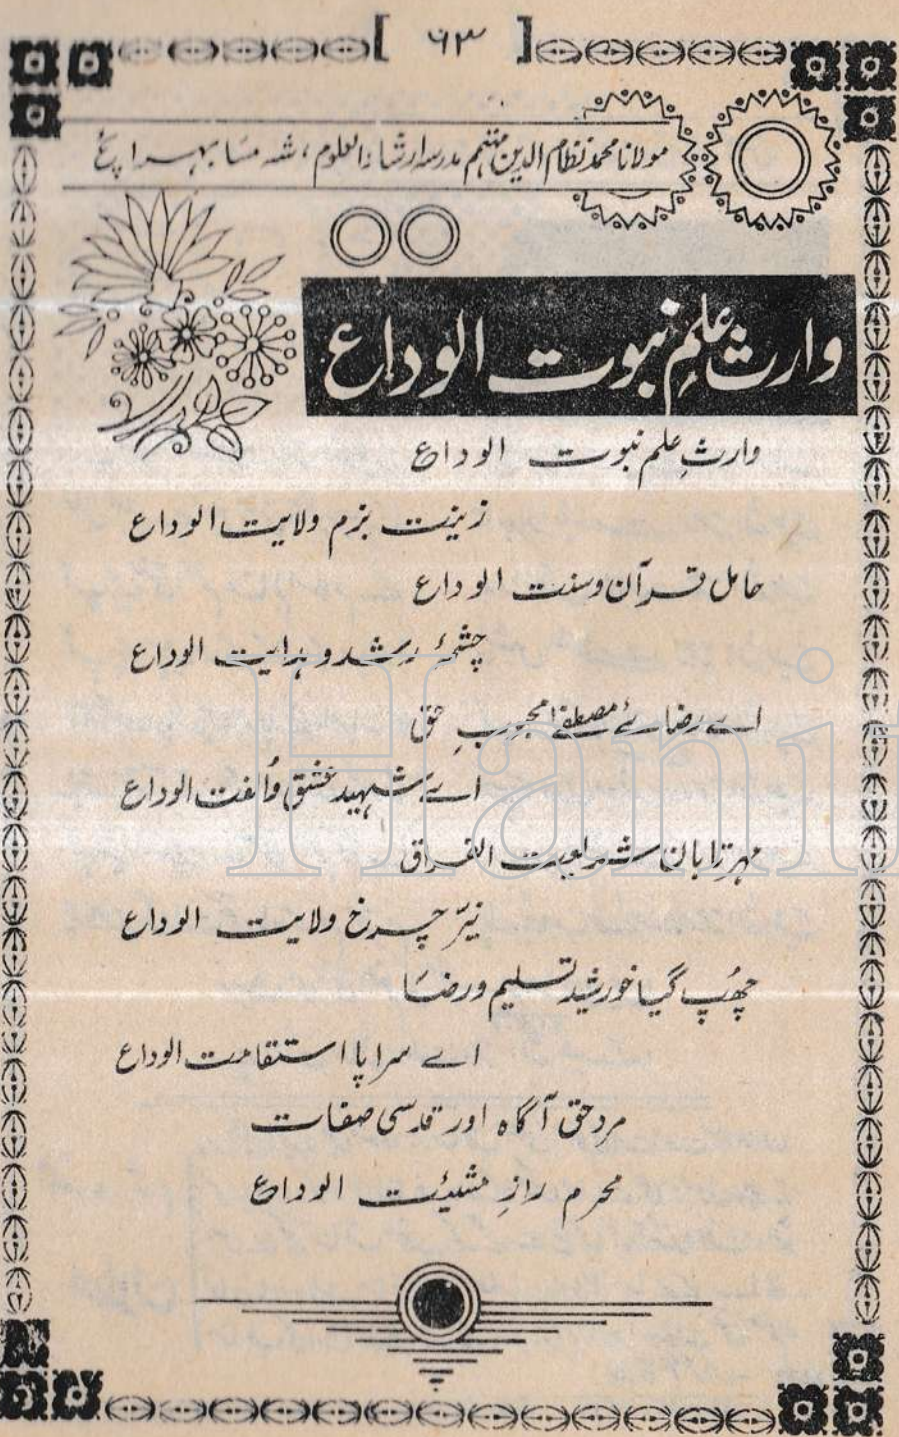 [ ۹۳ ]
مولانا محمد نظام الدین مہتمم مدرسہ ارشاد العلوم، شہ مسا بہرائچ
وارثِ علمِ نبوت الوداع
وارثِ علم نبوت الوداع
زینت بزم ولایت الوداع
حامل قرآن و سنت الوداع
چشمۂ رشد و ہدایت الوداع
اے رضائے مصطفےٰ محبوبِ حق
اے شہید عشق و اُلفت الوداع
مہر تابان شریعت الفراق
نیّر چرخ ولایت الوداع
چھُپ گیا خورشید تسلیم و رضا
اے سراپا استقامت الوداع
مرد حق آگاہ اور قدسی صفات
محرم رازِ مشیئت الوداع
Hani